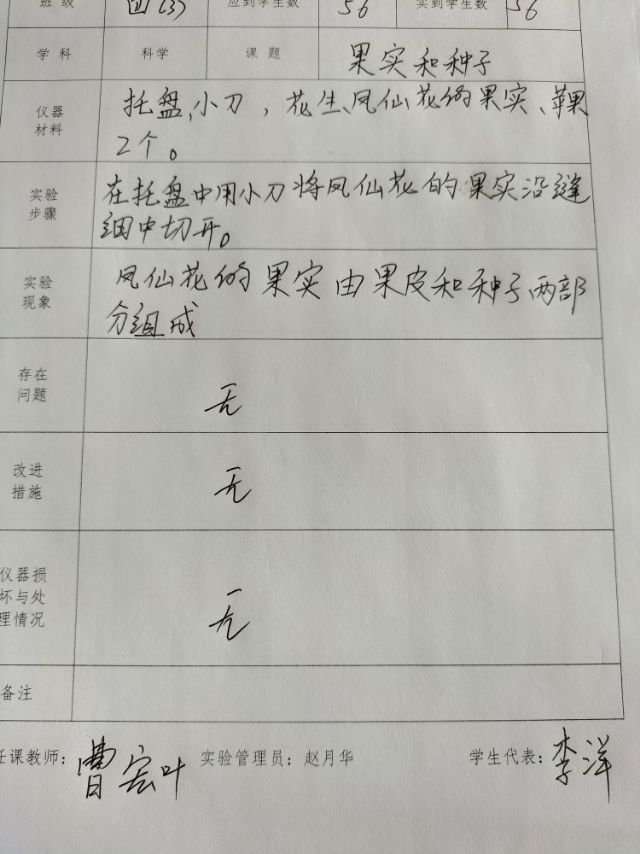 班级 四(3) 应到学生数 56 实到学生数 56
学科 科学 课题 果实和种子
仪器材料 托盘、小刀，花生、凤仙花的果实、苹果
2个。
实验步骤 在托盘中用小刀将凤仙花的果实沿缝
细中切开。
实验现象 凤仙花的果实由果皮和种子两部
分组成
存在问题 无
改进措施 无
仪器损坏与处理情况 无
备注
任课教师：曹宏叶 实验管理员：赵月华 学生代表：李洋